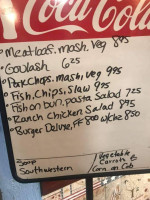 Coca-Cola
• Meatloaf, mash, veg 895
• Goulash 625
• Pork Chops, mash, veg 995
• Fish, Chips, Slaw 925
• Fish on bun, pasta Salad 725
• Ranch Chicken Salad 895
• Burger Deluxe, FF 800 w/che 850
Soup
Southwestern
Vegetable
Carrots &
Corn on Cob